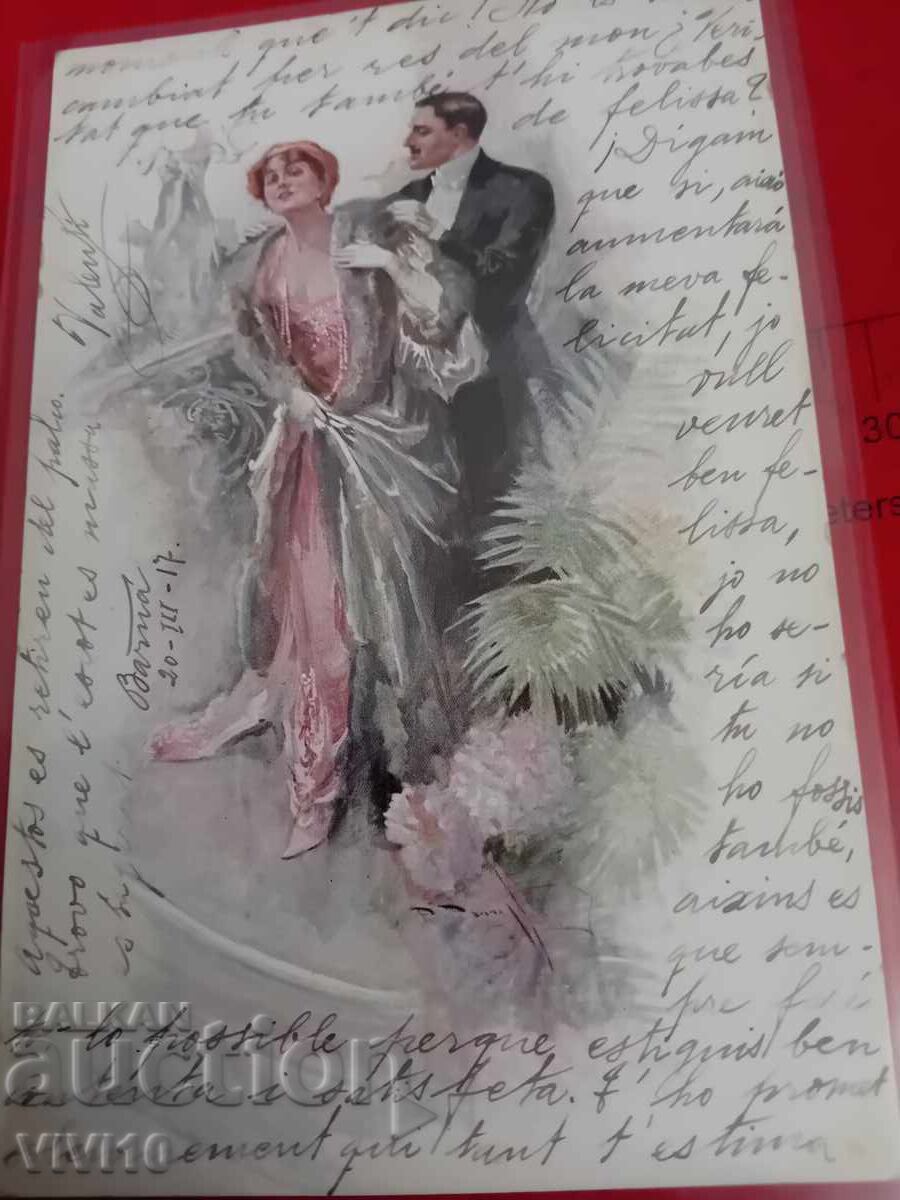 moment que 't dic! No es
cambiat per res del mon; Veri-
tat que tu també t'hi trovabes
de felissa?
¡Digam
que si, aixó
aumentará
la meva fe-
licitat, jo
vull
veuret
ben fe-
lissa,
jo no
ho se-
ría si
tu no
ho fossis
també,
aixins es
que sem-
pre faré
t-lo possible perque estiguis ben
contenta i satisfeta. T' ho promet
qui tant t'estima
Aquestos es retiren del palco.
Trovo que t'
Barna
20-III-17.
BALKAN
auction
VIVI10
30
eters